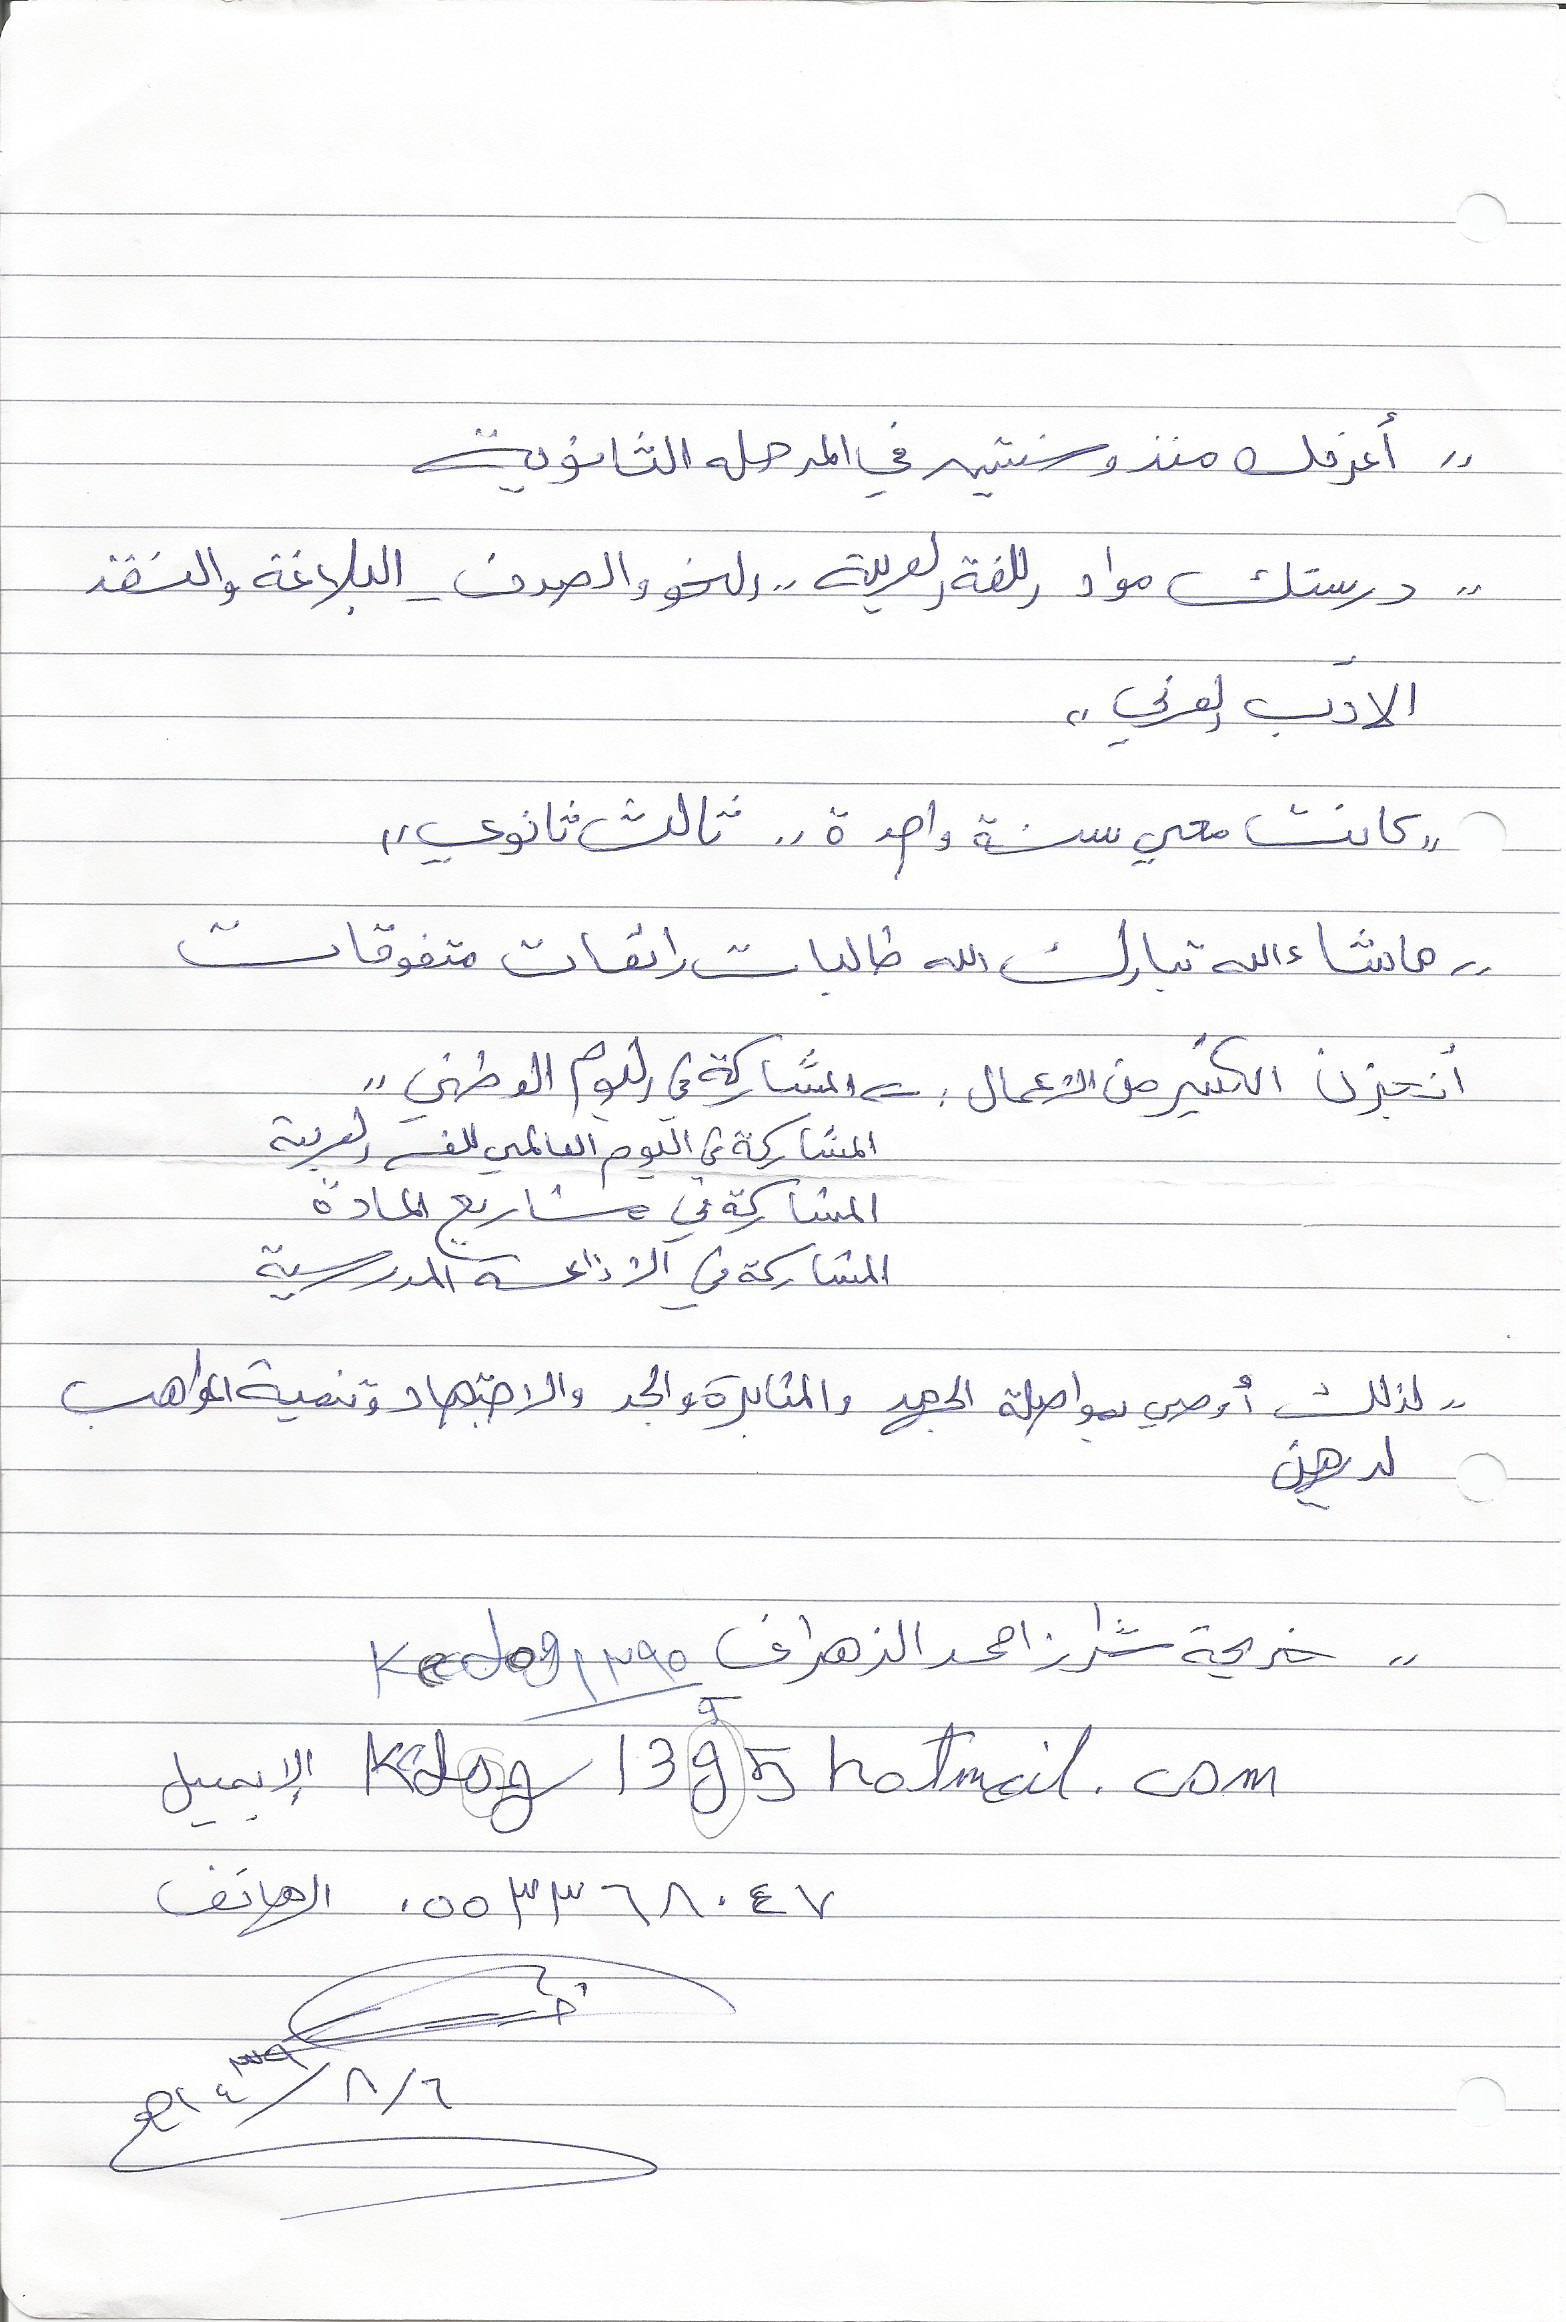 " أعرفك منذ سنتين في المرحله الثانوية
" درستك مواد اللغة العربية " النحو والصرف - البلاغة والنقد
الأدب العربي "
" كانت معي سنة واحدة " ثالث ثانوي "
" ماشاء الله تبارك الله طالبات رائعات متفوقات
أنجزن الكثير من الأعمال : - المشاركة في اليوم الوطني "
المشاركة في اليوم العالمي للغة العربية
المشاركة في مشاريع المادة
المشاركة في الاذاعة المدرسية
" لذلك أوصي بمواصلة الجهد والمثابرة والجد والاجتهاد وتنمية المواهب
لديهن
" خديحة احمد الزهراني ١٣٩٥
1395 hotmail.com الإيميل
٠٥٥٣٣٦٨٠٤٧ الهاتف
٦/٨/١٤٣٩هـ